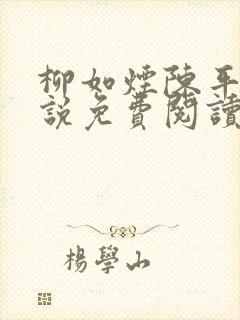 柳如煙陳平
説免費閱讀
楊學山